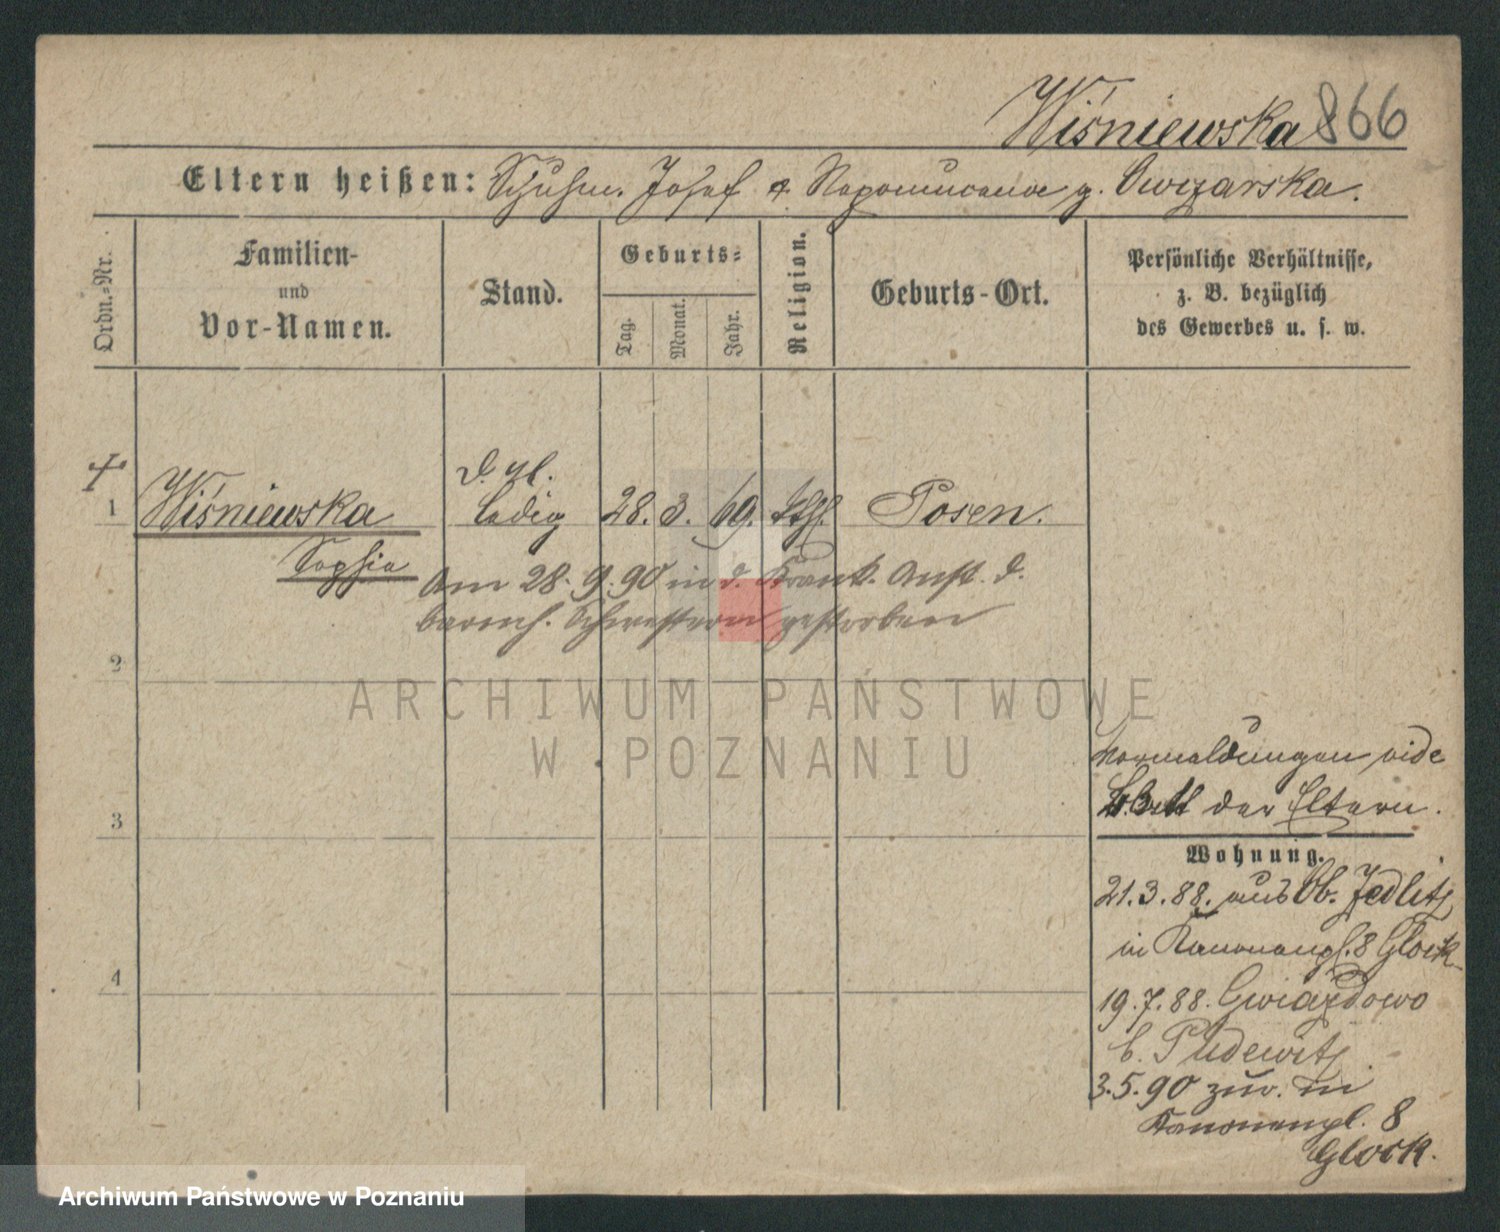 Wiśniewska 866
Eltern heißen: Schuhm. Josef & Nepomucena g. Owczarska.
Ordn.-Nr.
Familien-
und
Vor-Namen.
Stand.
Geburts-
Tag.
Monat.
Jahr.
Religion.
Geburts-Ort.
Persönliche Verhältnisse,
z. B. bezüglich
des Gewerbes u. s. w.
1 Wiśniewska ledig 28. 3. 69. kth. Posen.
Sophia
Am 28.9.90 in d. Krank. Anst. d.
barmh. Schwestern gestorben
2
3
4
ARCHIWUM PAŃSTWOWE
W POZNANIU
Vormeldungen vide
Blatt der Eltern.
Wohnung.
21.3.88. aus Ob. Jedlitz
in Kanonenpl. 8 Glock
19.7.88. Gwiazdowo
b. Pudewitz
3.5.90 zur. in
Kanonenpl. 8
Glock.
Archiwum Państwowe w Poznaniu